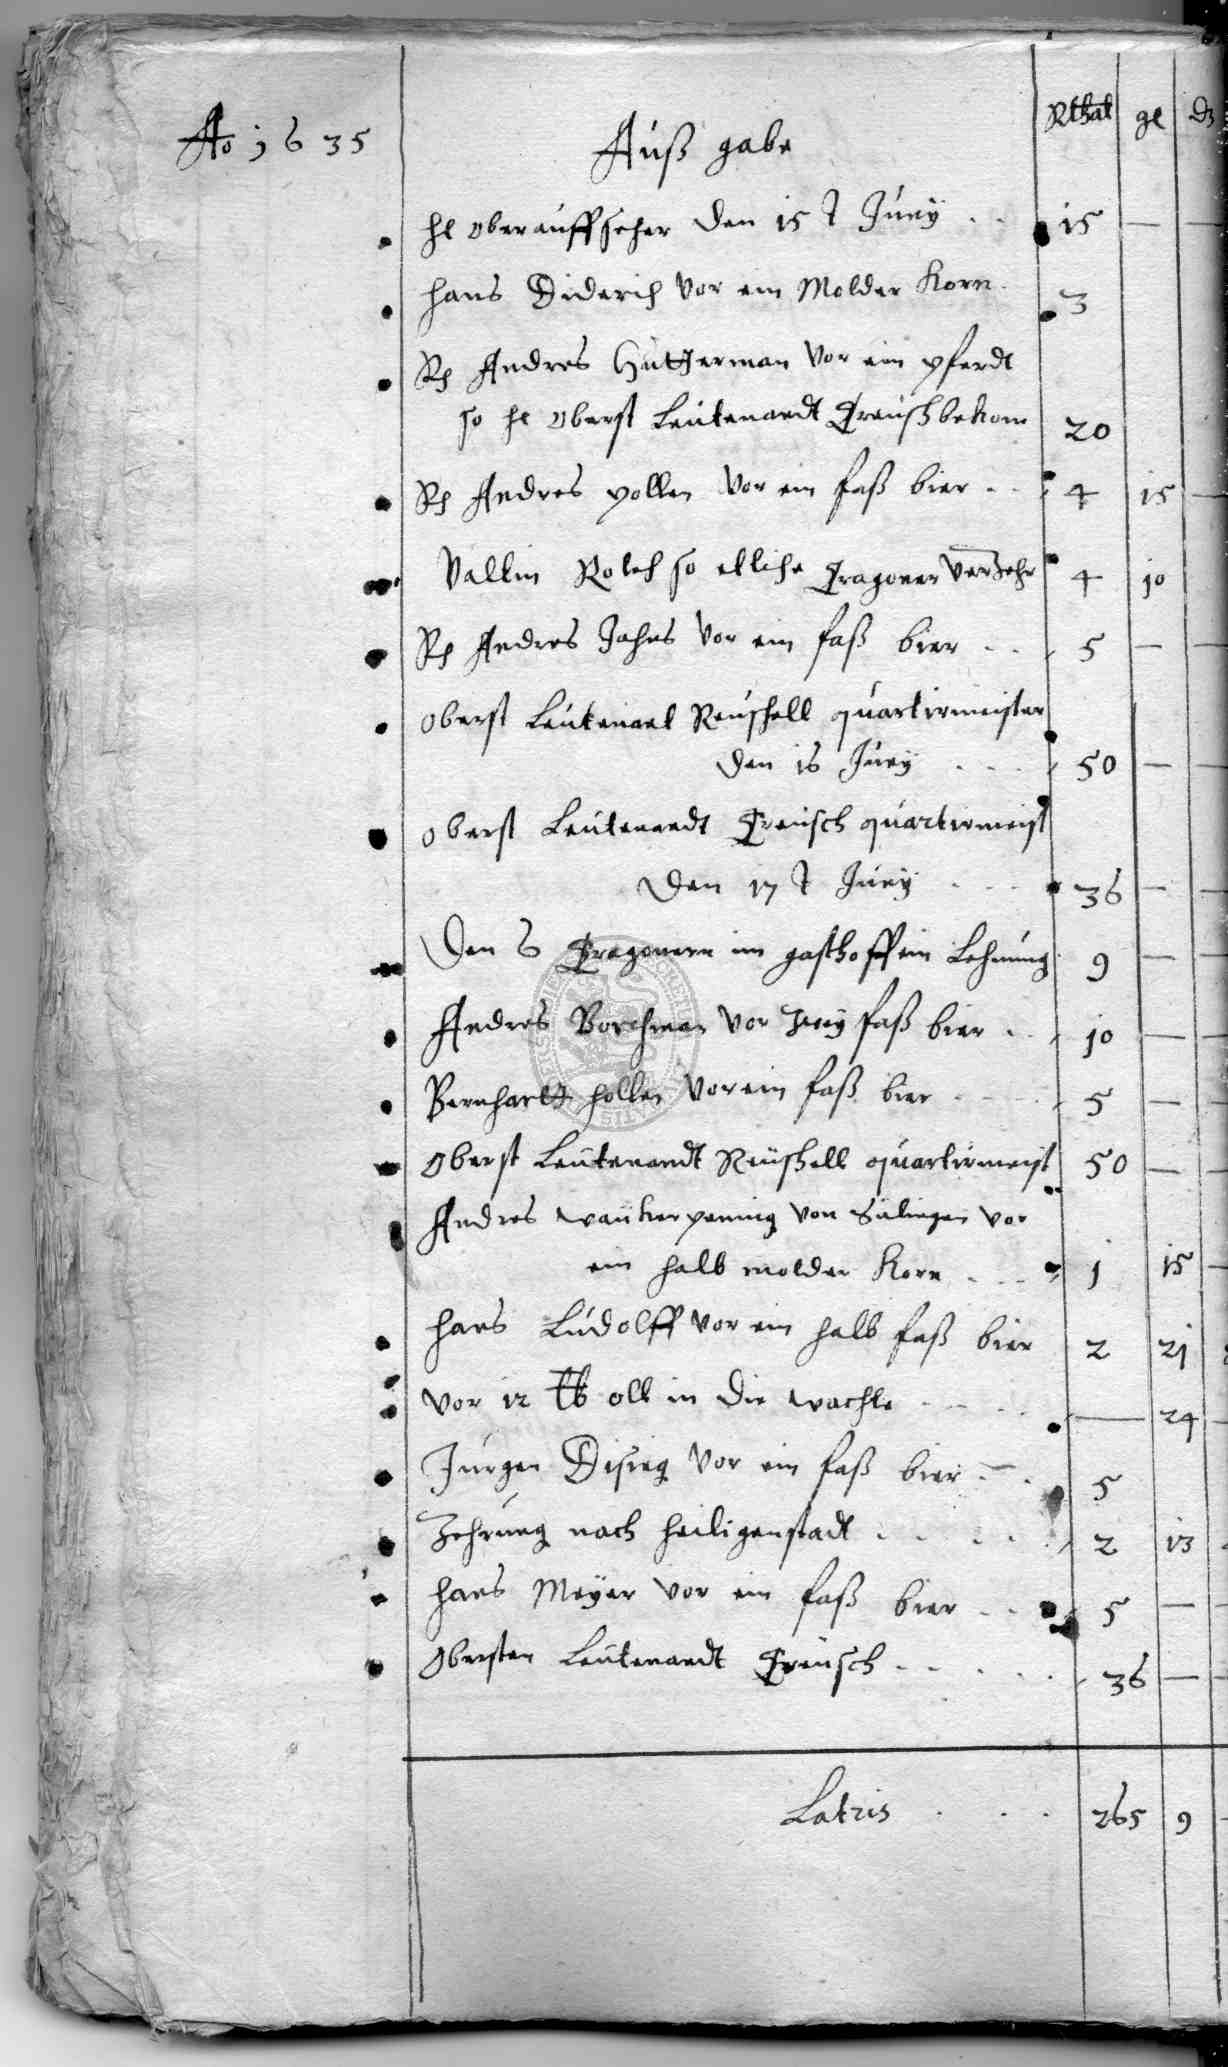 Ao 1635 Außgabe Rthal gl d
hl Oberauffseher den 15 t Juny 15 — —
Hans Diderich vor ein Molder Korn 3
Rh Andres vor ein pferdt
so hl Oberst Leutenandt Creusch bekom 20
Rh Andres pollen vor ein faß bier 4 15 —
Valtin so etliche Tragoner verzehr 4 10
Rh Andres Jahns vor ein faß bier 5 — —
Oberst Leutenant Reuschell quartirmeister
den 16 Juny 50 — —
Oberst Leutenandt Creusch quartirmeist
den 17 t Juny 36 — —
Den 6 Tragonern im gasthoff ein Lehnung 9 — —
Andres Borchman vor zwey faß bier 10 — —
Bernhartt hollen vor ein faß bier 5 — —
Oberst Leutenandt Reuschell quartirmeist 50 — —
Andres von Sulingen vor
ein halb molder Korn 1 15 —
Hans Ludolff vor ein halb faß bier 2 21
vor 12 lb oll in die wachte — 24 —
Jurgen vor ein faß bier 5
Zehrung nach Heiligenstadt 2 13
Hans Meyer vor ein faß bier 5 — —
Obersten Leutenandt Creusch 36 — —
Latris 265 9